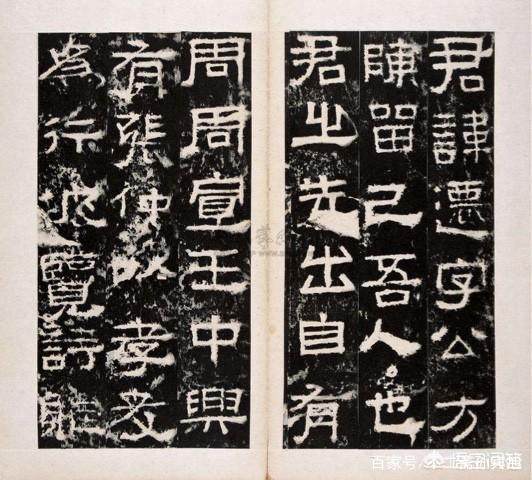 君諱遷字公方
陳留己吾人也
君之先出自有
周周宣王中興
有張仲以孝友
為行披覽詩雅
百家号